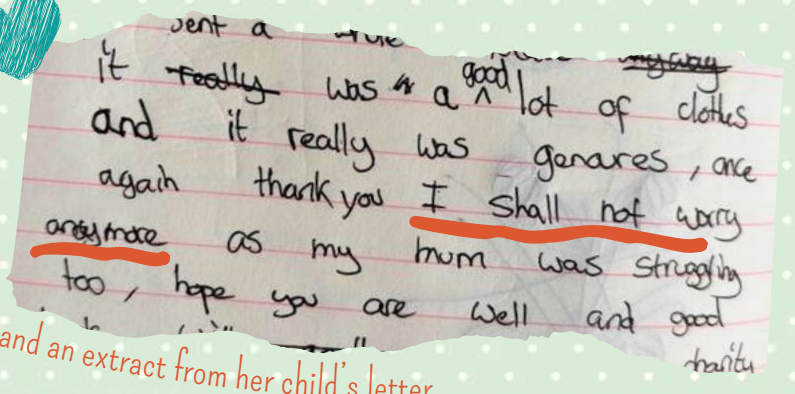 sent a
it really was a good lot of clothes
and it really was genares, once
again thank you I shall not worry
anymore as my mum was struggling
too, hope you are well and good
charity
and an extract from her child's letter